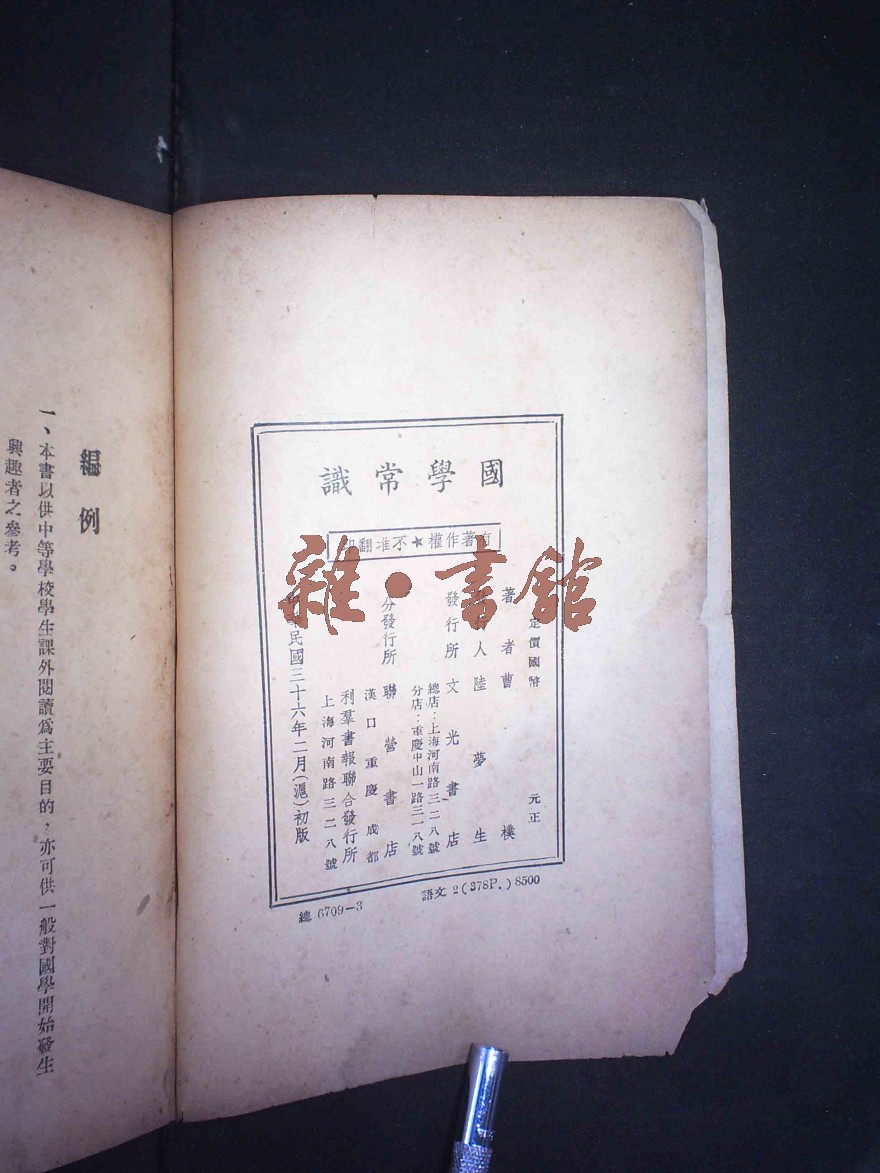 國學常識
有著作權★不准翻印
定價國幣 元正
著者曹樸
發行人陸夢生
發行所文光書店
總店：上海河南路三二八號
分店：重慶中山一路三一八號
分發行所聯營書店
漢口重慶成都
利羣書報聯合發行所
上海河南路三二八號
中華民國三十六年二月(滬)初版
語文2(378P.)8500
總6709-3
編例
一、本書以供中等學校學生課外閱讀爲主要目的，亦可供一般對國學開始發生
興趣者之參考。
雜·書館